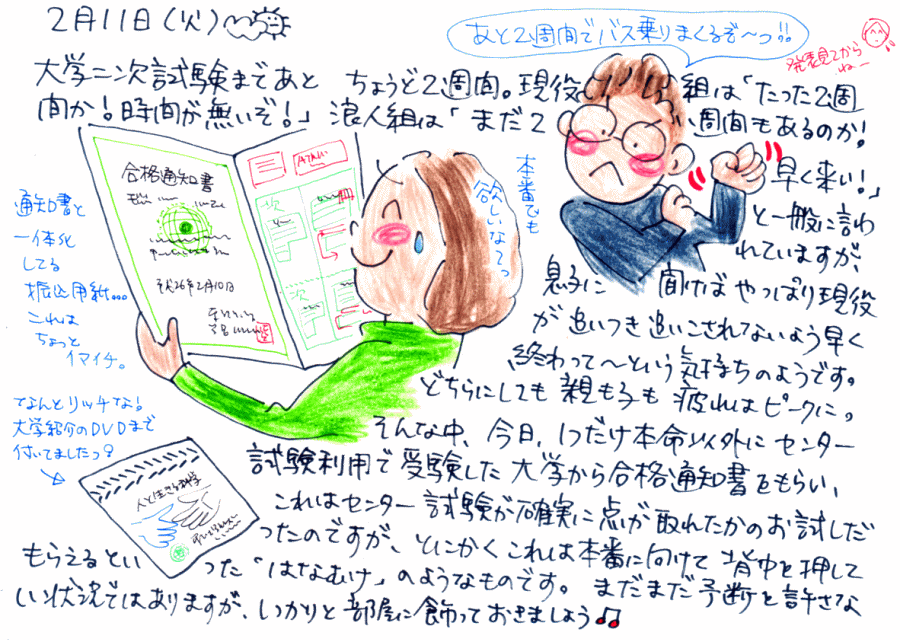 2月11日(火)
あと2週間でバス乗りまくるぞ〜っ!!
発表見てから
ねー
大学二次試験まであと ちょうど2週間。現役 組は「たった2週
間か!時間が無いぞ!」浪人組は「まだ2 週間もあるのか!
早く来い!」
と一般に言わ
れていますが、
息子に 聞けば やっぱり現役
が追いつき追いこされてないよう早く
終わって〜という気持ちのようです。
どちらにしても 親も子も 疲れはピークにっ
そんな中、今日、1つだけ本命以外にセンター
試験利用で受験した大学から合格通知書をもらい、
これはセンター試験が確実に点が取れたかのお試しだ
ったのですが、とにかくこれは本番に向けて 背中を押して
もらえるとい った「はなむけ」のようなものです。まだまだ予断を許さな
い状況ではありますが、しっかりと部屋に飾っておきましょう♫
本番でも
欲しいなてっ
合格通知書
平成26年2月10日
通知書と
一体化
してる
振込用紙…
これは
ちょっと
イマイチ。
なんとリッチな!
大学紹介のDVDまで
付いてましたっ?
人と生きる